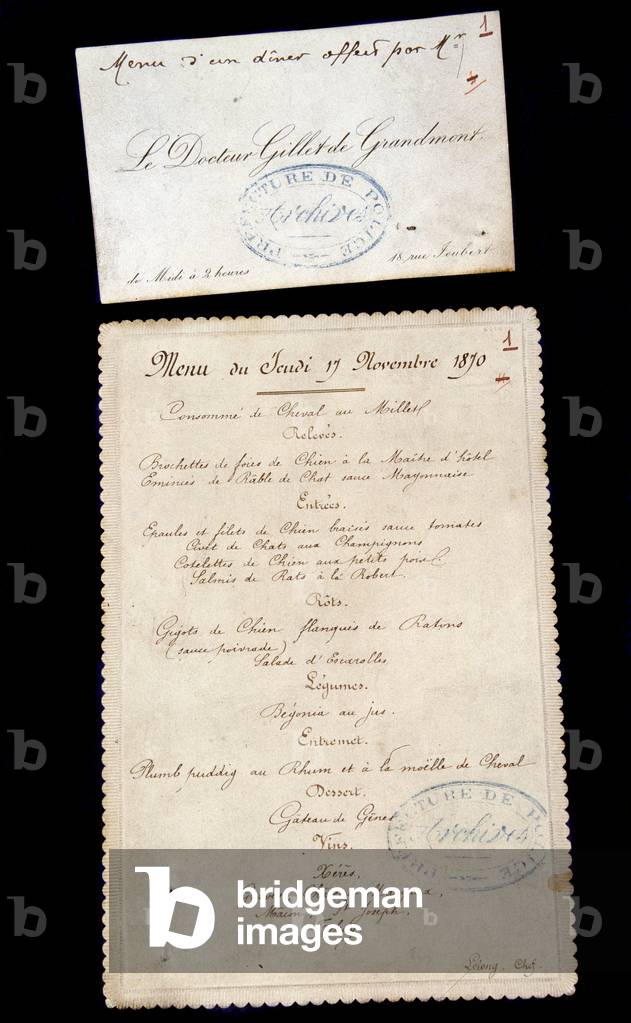 1
Menu d'un dîner offert par Mr
Le Docteur Gillet de Grandmont
PREFECTURE DE POLICE
Archives
de Midi à 2 heures
18, rue Joubert
1
Menu du Jeudi 17 Novembre 1870
Consommé de Cheval au Millet
Relevés.
Brochettes de foies de Chien à la Maître d'hôtel
Emincés de Râble de Chat sauce Mayonnaise
Entrées.
Epaules et filets de Chien braisés sauce tomates
Civet de Chats aux Champignons
Cotelettes de Chien aux petits pois
Salmis de Rats à la Robert.
Rôts.
Gigots de Chien flanqués de Ratons
(sauce poivrade)
Salade d'Escarolles
Légumes.
Bégonia au jus.
Entremet.
Plumb puddig au Rhum et à la moëlle de Cheval
Dessert.
Gâteau de Gênes
Vins.
PREFECTURE DE POLICE
Archives
Xérès,
St Joseph,
Chef.
b bridgeman
images
b b
b b
b b
b b
b b
b b